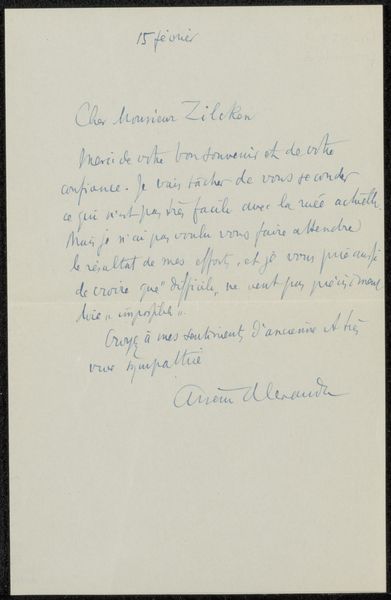 15 février
Cher Monsieur Zilcken
Merci de votre bon souvenir et de votre
confiance. Je vais tâcher de vous seconder
ce qui n'est pas très facile avec la ruée actuelle
Mais je n'ai pas voulu vous faire attendre
le résultat de mes efforts, et je vous prie aussi
de croire que "difficile" ne veut pas précisément
dire "impossible".
Croyez à mes sentiments d'ancienne et très
vive sympathie
Arsène Alexandre